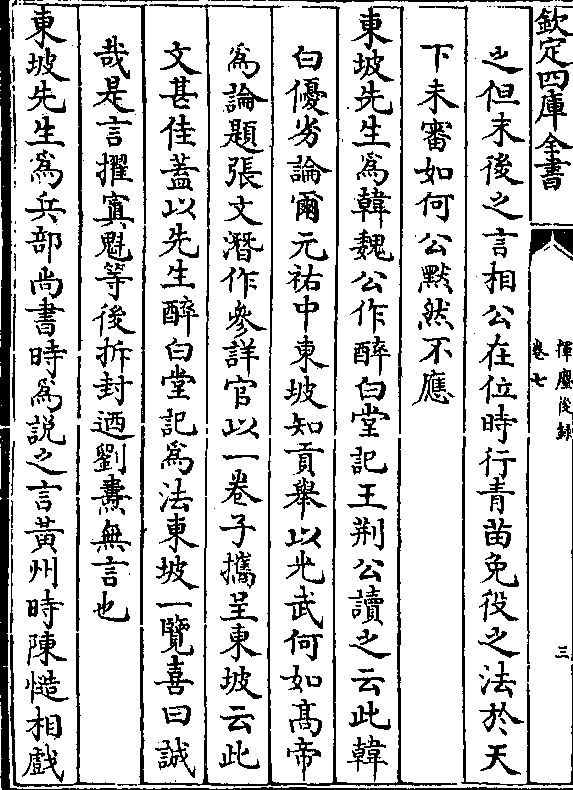 欽定四庫全書
揮麈後録
卷七
三
之但末後之言相公在位時行青苗免役之法於天
下未審如何公黙然不應
東坡先生為韓魏公作醉白堂記王荆公讀之云此韓
白優劣論爾元祐中東坡知貢舉以光武何如髙帝
為論題張文潛作參詳官以一卷子攜呈東坡云此
文甚佳蓋以先生醉白堂記為法東坡一覽喜曰誠
哉是言擢寘魁等後拆封迺劉燾無言也
東坡先生為兵部尚書時為説之言黃州時陳慥相戲